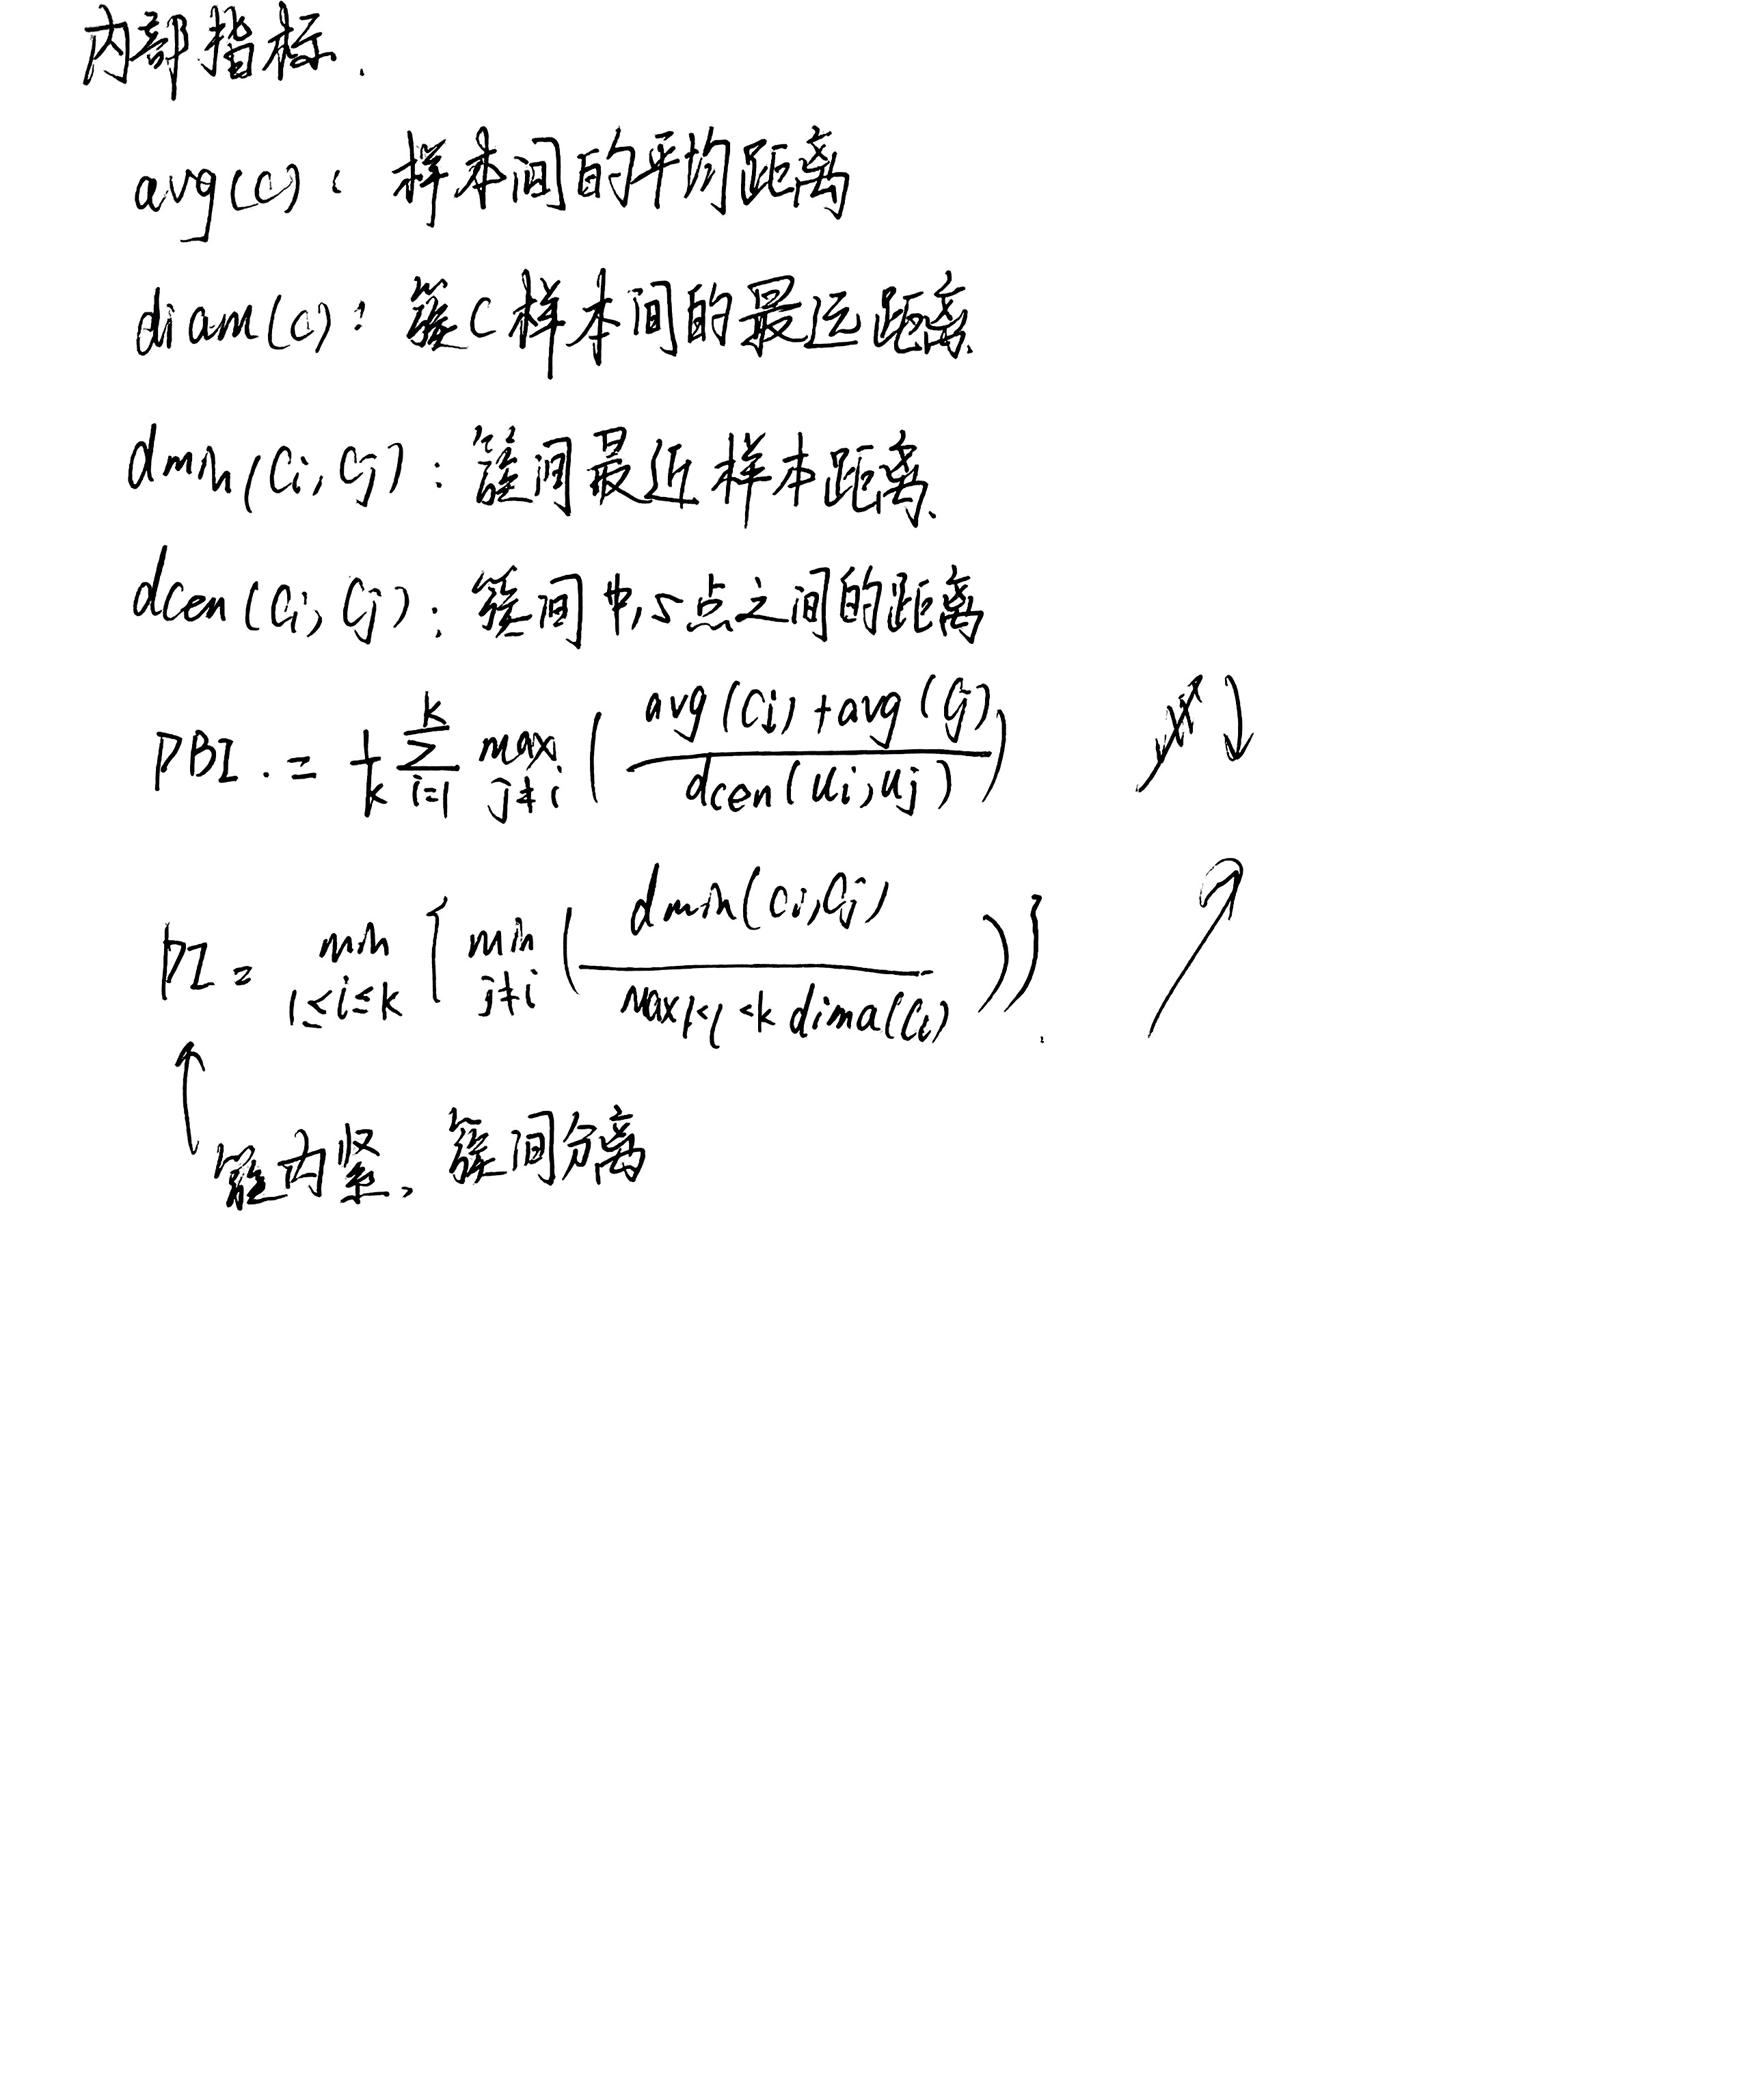 内部指标.
avg(C): 样本间的平均距离
diam(C): 簇C样本间的最远距离.
dmin(Ci, Cj): 簇间最近样本距离.
dcen(Ci, Cj): 簇间中心点之间的距离
DBI. = 1/k ∑_{i=1}^{k} max_{j≠i} ( (avg(Ci)+avg(Cj)) / dcen(ui, uj) ) ↓
DI = min_{1≤i≤k} { min_{j≠i} ( dmin(Ci, Cj) / max1<l<k dima(Cl) ) }. ↗
↑
簇内紧, 簇间分离